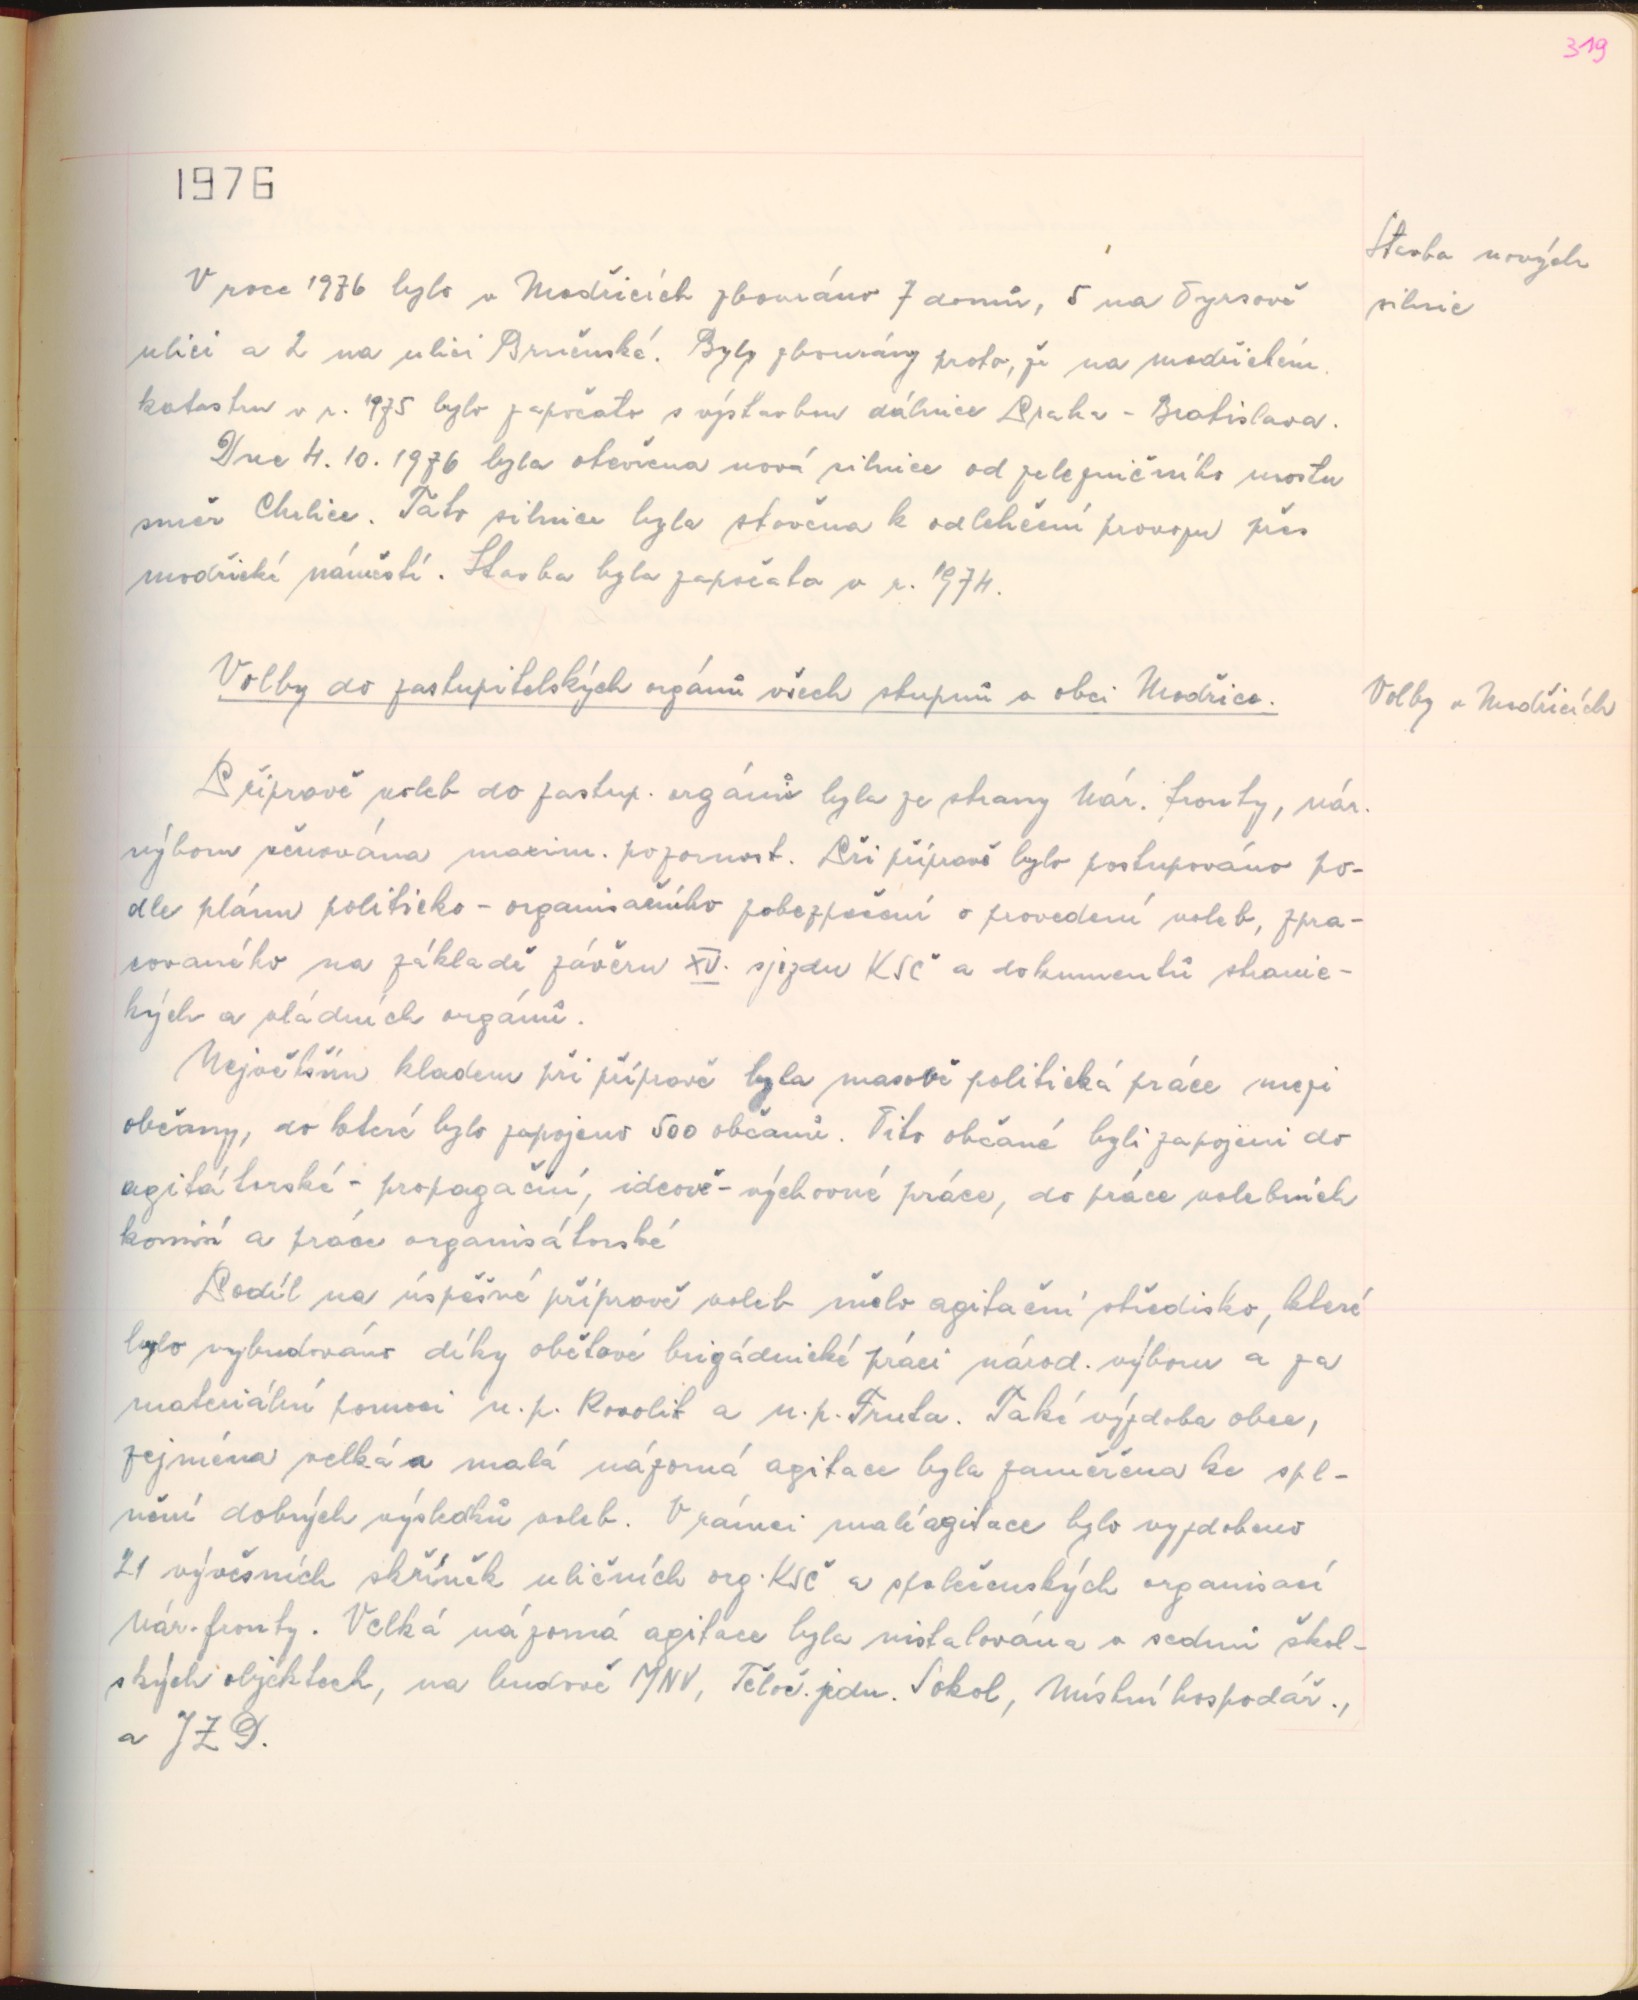 319
1976
Stavba nových
silnic
V roce 1976 bylo v Modřicích zbouráno 7 domů, 5 na Tyršově
ulici a 2 na ulici Brněnské. Byly zbourány proto, že na modřickém
katastru v r. 1975 bylo započato s výstavbou dálnice Praha - Bratislava.
Dne 4. 10. 1976 byla otevřena nová silnice od železničního mostu
směr Chrlice. Tato silnice byla stavěna k odlehčení provozu přes
modřické náměstí. Stavba byla započata v r. 1974.
Volby do zastupitelských orgánů všech stupňů v obci Modřice.
Volby v Modřicích
Přípravě voleb do zastup. orgánů byla ze strany Nár. fronty, nár.
výboru věnována maxim. pozornost. Při přípravě bylo postupováno po-
dle plánu politicko - organisačního zabezpečení a provedení voleb, zpra-
covaného na základě závěru XV. sjezdu KSČ a dokumentů stranic-
kých a vládních orgánů.
Největším kladem při přípravě byla masově politická práce mezi
občany, do které bylo zapojeno 500 občanů. Tito občané byli zapojeni do
agitátorské - propagační, ideově - výchovné práce, do práce volebních
komisí a práce organisátorské
Podíl na úspěšné přípravě voleb mělo agitační středisko, které
bylo vybudováno díky obětavé brigádnické práci národ. výboru a za
materiální pomoci n. p. Kovolit a n. p. Fruta. Také výzdoba obce,
zejména velká a malá názorná agitace byla zaměřena ke spl-
nění dobrých výsledků voleb. V rámci malé agitace bylo vyzdobeno
21 vývěsních skříněk uličních org. KSČ a společenských organisací
Nár. fronty. Velká názorná agitace byla instalována v sedmi škol-
ských objektech, na budově MNV, Těloc. jedn. Sokol, Místní hospodář.,
a JZD.